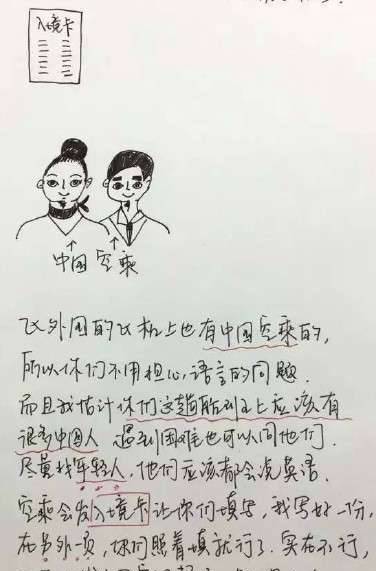 入境卡
中国空乘
飞外国的飞机上也有中国空乘的,
所以你们不用担心语言的问题.
而且我估计你们这趟航班上应该有
很多中国人 遇到困难也可以问他们.
尽量找年轻人,他们应该都会说英语.
空乘会发入境卡让你们填写,我写好一份,
在另外一页,你们照着填就行了.实在不行,